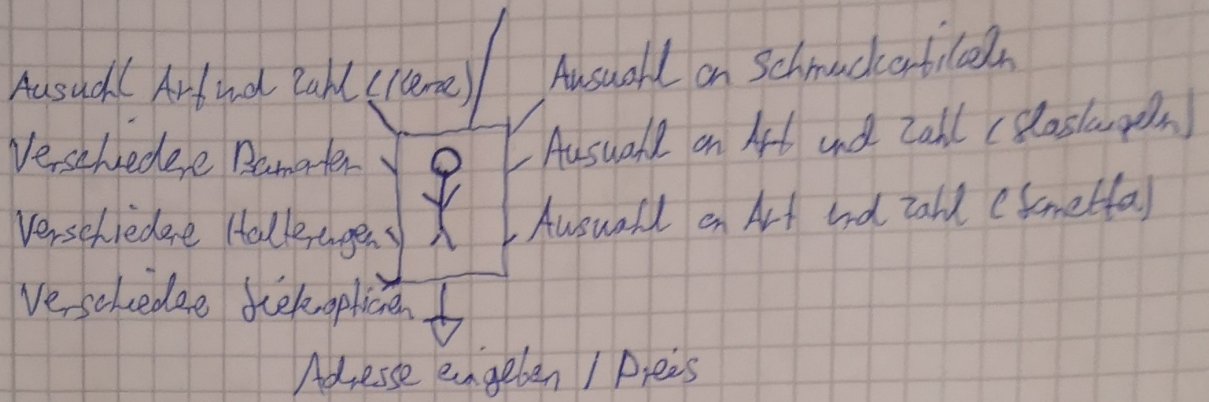 Auswahl Art und Zahl (Kerze)
Verschiedene Baumarten
Verschiedene Halterungen
Verschiedene Lieferoptionen
Auswahl an Schmuckartikeln
Auswahl an Art und Zahl (Glaskugeln)
Auswahl an Art und Zahl (Lametta)
Adresse eingeben / Preis